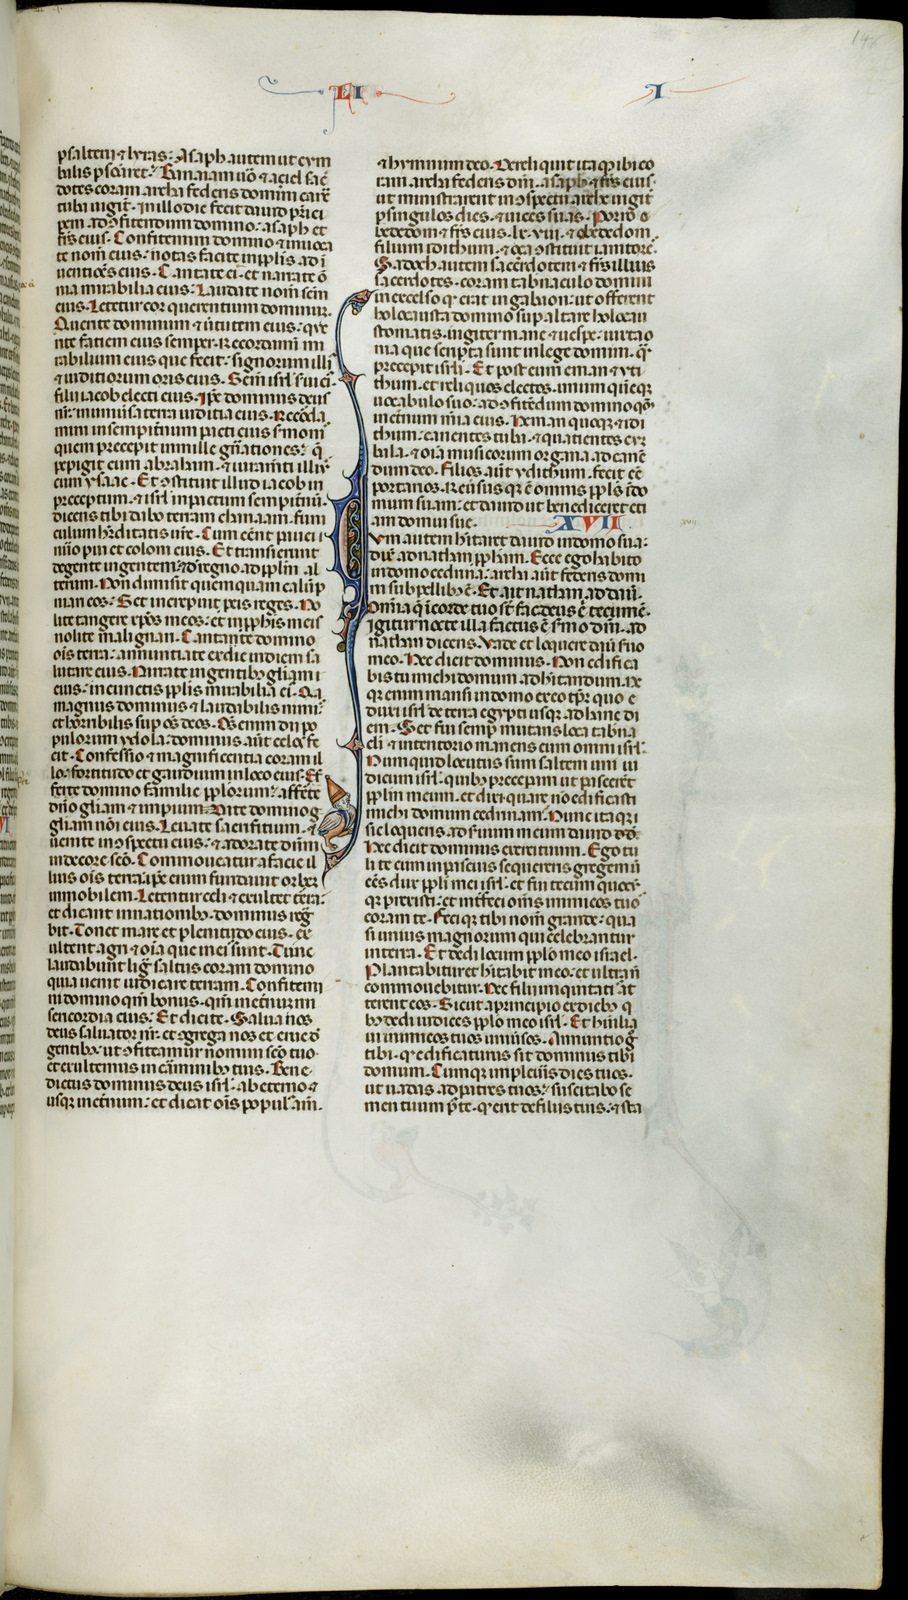 LI
I
146
psalterii ⁊ lyras: Asaph autem ut cym
bilis psonaret: Banaiam u̅o ⁊ aciel sac̅
dotes coram archa federis domini cane̅
tuba iugit̅. In illo die fecit dauid pri̅ci
pem ad ꝯfitendum domino: asaph et
fr̅s eius. Confitemini domino ⁊ inuoca
te nomen eius: notas facite in pp̅lis adi
uentiones eius. Cantate ei: et narrate o̅
nia mirabilia eius: Laudate nom̅ sc̅m
eius. Letetur cor querentium dominum.
Querite dominum ⁊ u̅tutem eius: que
rite faciem eius semper. Recordami̅ mi
rabilium eius que fecit: signorum illi᷒
⁊ iudiciorum oris eius. Semen isrl̅ serui ei᷒:
filii iacob electi eius. Ipe dominus deus
nr̅: in uniuersa terra iudicia eius. Recorda
mini in sempiternum pacti eius: s̅monis
quem precepit in mille gn̅ationes: q̅
pepigit cum abraham: ⁊ iuramti illi᷒
cum ysaac. Et ꝯstituit illud iacob in
preceptum: ⁊ isrl̅ in pactum sempit̅nu̅:
dicens tibi dabo terram chanaam: funi
culum h̅editatis ur̅e. Cum ee̅nt pauci i
nu̅o parui et coloni eius. Et transierunt
de gente in gentem: ⁊ de regno ad pp̅lm al
terum. Non dimisit quemquam calu̅p
niari eos: Set increpauit p eis reges. No
lite tangere xp̅os meos: et in pp̅hetis meis
nolite malignari. Cantate domino
om̅is terra: annuntiate ex die in diem sa
lutare eius. Narrate in gentibus gl̅iam
eius: in cunctis pp̅lis mirabilia ei᷒. Q̅a
magnus dominus ⁊ laudabilis nimi᷒:
et horribilis sup om̅s deos. Om̅s enim dii po
pulorum ydola: dominus aut̅ celos fe
cit. Confessio ⁊ magnificentia coram il
lo: fortitudo et gaudium in loco eius. Af
ferte domino familie pp̅lorum: afferte
dn̅o gl̅iam ⁊ imperium. Date domino
gl̅iam no̅i eius. Leuate sacrificium: ⁊
uenite in ꝯspectu eius: ⁊ adorate dn̅m
in decore sc̅o. Commoueatur a facie il
lius om̅is terra: ip̅e enim fundauit orbem
immobilem. Letentur celi ⁊ exultet terra:
et dicant in nationib᷒: dominus reg̅
bit. Tonet mare et plenitudo eius: ex
ultent agri ⁊ om̅ia que in eis sunt. Tunc
laudabunt lig̅ saltus coram domino
quia uenit iudicare terram. Confitemi
ni domino qm̅ bonus: qm̅ in eternum mi
sericordia eius: Et dicite. Salua nos
deus saluator nr̅: et ꝯgrega nos et erue d̅
gentib᷒: ut ꝯfiteamur nomini sc̅o tuo
et exultemus in carminib᷒ tuis. Bene
dictus dominus deus isrl̅: ab eterno ⁊
usq in et̅num: et dicat om̅is popul᷒ am̅.
⁊ hymnum deo. Dereliquit itaq ibi co
ram archa federis dn̅i asaph ⁊ fr̅s eius
ut ministrarent in ꝯspectu arche iugit̅
p singulos dies ⁊ uices suas. Porro o
bededom ⁊ fr̅s eius. lx. viii. ⁊ obededom
filium idithum: ⁊ oza ꝯstituit ianitore̅s.
Sadoch autem sacerdotem ⁊ fr̅s illius
sacerdotes: coram tab̅naculo domini
in excelso q̅ erat in gabaon: ut offerent
holocausta domino sup altare holocau
stomatis: iugiter mane ⁊ uespe: iuxta o
mia que scripta sunt in lege domini: que
precepit isrl̅i. Et post eum eman ⁊ yti
thum: et reliquos electos: unumque̅q
uocabulo suo: ad ꝯfitendum domino qm̅
in et̅num mi̅a eius. Heman quoque ⁊ idi
thum: canentes tuba ⁊ quatientes cym
bala: ⁊ om̅ia musicorum organa ad cane̅
dum deo. Filios aut̅ ydithum: fecit ee̅
portarios. Reu̅susq e̅ omnis pp̅ls in do
mum suam: et dauid ut benediceret eti
am domui sue. XVII
xvii
Cum autem h̅itaret dauid in domo sua:
dix̅ ad nathan pp̅ham. Ecce ego habito
in domo cedrina: archa aut̅ federis domi
ni sub pellib᷒ e̅. Et ait nathan ad dauid:
Omnia q̅ in corde tuo st̅ fac: deus e̅ tecum.
Igitur nocte illa factus e̅ s̅mo dn̅i ad
nathan dicens. Vade et loquere dauid seruo
meo. Hec dicit dominus. Non edifica
bis tu michi domum ad h̅itandum. Ne
q̅ enim mansi in domo ex eo tpr̅e quo e
duxi isrl̅ de terra egypti usq ad hunc di
em: Set fui semp mutans loca tab̅na
cli: ⁊ in tentorio manens cum omni isrl̅.
Numquid locutus sum saltem uni iu
dicum isrl̅: quib᷒ preceperam ut pascerent
pp̅lm meum: et dixi quare no̅ edificasti
michi domum cedrinam. Nunc itaq̅
sic loqueris ad seruum meum dauid.
Hec dicit dominus exercituum. Ego tu
li te cum in pascuis sequereris gregem: u̅
ee̅s dux pp̅li mei isrl̅: et fui tecum quocu̅
q̅ prexisti: et int̅feci om̅s inimicos tuos
coram te. Feciq tibi nom̅ grande: qua
si unius magnorum qui celebrantur
in terra. Et dedi locum pp̅lo meo israel.
Plantabitur et h̅itabit in eo: et ultra n̅
commouebitur. Nec filii iniquitatis at
terent eos: Sicut a principio ex dieb᷒ q
b᷒ dedi iudices pp̅lo meo isrl̅. Et humilia
ui inimicos tuos uniu̅sos. Annuntio g̅
tibi: q̅ edificaturus sit dominus tibi
domum. Cumq impleueris dies tuos:
ut uadas ad patres tuos: suscitabo se
men tuum p̅t te: q̅ erit de filiis tuis: ⁊ sta